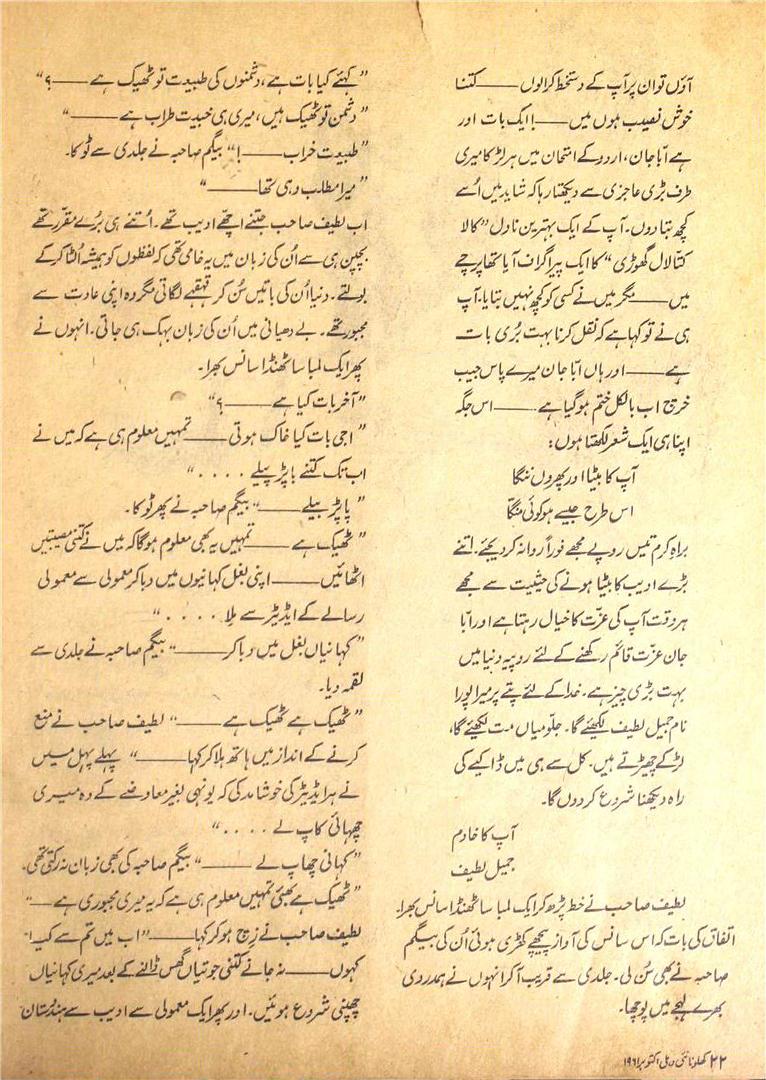 آؤں تو ان پر آپ کے دستخط کرالوں ——— کتنا
خوش نصیب ہوں میں ——— !! ایک بات اور
ہے ابّا جان، اردو کے امتحان میں ہر لڑکا میری
طرف بڑی عاجزی سے دیکھتا رہا کہ شاید میں اُسے
کچھ بتا دوں۔ آپ کے ایک بہترین ناول ”کالا
کتّا لال گھوڑی“ کا ایک پیراگراف آیا تھا پرچے
میں ——— مگر میں نے کسی کو کچھ نہیں بتایا۔ آپ
ہی نے تو کہا ہے کہ نقل کرنا بہت بُری بات
ہے ——— اور ہاں ابّا جان میرے پاس جیب
خرچ اب بالکل ختم ہو گیا ہے ——— اس جگہ
اپنا ہی ایک شعر لکھتا ہوں:
آپ کا بیٹا اور پھروں ننگا
اس طرح جیسے ہو کوئی منگا
براہِ کرم تیس روپے مجھے فوراً روانہ کر دیجئے۔ اتنے
بڑے ادیب کا بیٹا ہونے کی حیثیت سے مجھے
ہر وقت آپ کی عزّت کا خیال رہتا ہے اور ابّا
جان عزّت قائم رکھنے کے لئے روپیہ دنیا میں
بہت بڑی چیز ہے۔ خدا کے لئے پتے پر میرا پورا
نام جمیل لطیف لکھیئے گا۔ جلّو میاں مت لکھیئے گا،
لڑکے چھیڑتے ہیں۔ کل سے ہی میں ڈاکیے کی
راہ دیکھنا شروع کردوں گا۔
آپ کا خادم
جمیل لطیف
لطیف صاحب نے خط پڑھ کر ایک لمبا سا ٹھنڈا سانس بھرا۔
اتفاق کی بات کہ اس سانس کی آواز پیچھے کھڑی ہوئی اُن کی بیگم
صاحبہ نے بھی سُن لی۔ جلدی سے قریب آکر انہوں نے ہمدردی
بھرے لہجے میں پوچھا۔
”کہئے کیا بات ہے، دشمنوں کی طبیعت تو ٹھیک ہے ——— ؟“
”دشمن تو ٹھیک ہیں، میری ہی خبیت طراب ہے ———“
”طبیعت خراب ——— !“ بیگم صاحبہ نے جلدی سے ٹوکا۔
”میرا مطلب وہی تھا ———“
اب لطیف صاحب جتنے اچھے ادیب تھے۔ اُتنے ہی بُرے مقرّر تھے
بچپن ہی سے اُن کی زبان میں یہ خامی تھی کہ لفظوں کو ہمیشہ اُلٹا کر کے
بولتے۔ دنیا اُن کی باتیں سُن کر قہقہے لگاتی مگر وہ اپنی عادت سے
مجبور تھے۔ بے دھیانی میں اُن کی زبان بہک ہی جاتی۔ انہوں نے
پھر ایک لمبا سا ٹھنڈا سانس بھرا۔
”آخر بات کیا ہے ——— ؟“
”اجی بات کیا خاک ہوتی ——— تمہیں معلوم ہی ہے کہ میں نے
اب تک کتنے باپڑ پیلے ....“
”پاپڑ بیلے ———“ بیگم صاحبہ نے پھر ٹوکا۔
”ٹھیک ہے ——— تمہیں یہ بھی معلوم ہوگا کہ میں نے کتنی مصیبتیں
اٹھائیں ——— اپنی بغل کہانیوں میں دبا کر معمولی سے معمولی
رسالے کے ایڈیٹر سے ملا ....“
”کہانیاں بغل میں دبا کر ———“ بیگم صاحبہ نے جلدی سے
لقمہ دیا۔
”ٹھیک ہے ٹھیک ہے ———“ لطیف صاحب نے منع
کرنے کے انداز میں ہاتھ ہلا کر کہا ——— ”پہلے پہل میں
نے ہر ایڈیٹر کی خوشامد کی کہ یونہی بغیر معاوضے کے وہ میری
چھہائی کاپ لے ....“
”کہانی چھاپ لے ———“ بیگم صاحبہ کی بھی زبان نہ رکتی تھی۔
”ٹھیک ہے بھئی تمہیں معلوم ہی ہے کہ یہ میری مجبوری ہے ———“
لطیف صاحب نے زچ ہو کر کہا ——— ”اب میں تم سے کیا
کہوں ——— نہ جانے کتنی جوتیاں گھس ڈالنے کے بعد میری کہانیاں
چھپنی شروع ہوئیں۔ اور پھر ایک معمولی سے ادیب سے ہندُستان
۲۲ کھلونا نئی دہلی اکتوبر ۱۹۶۱